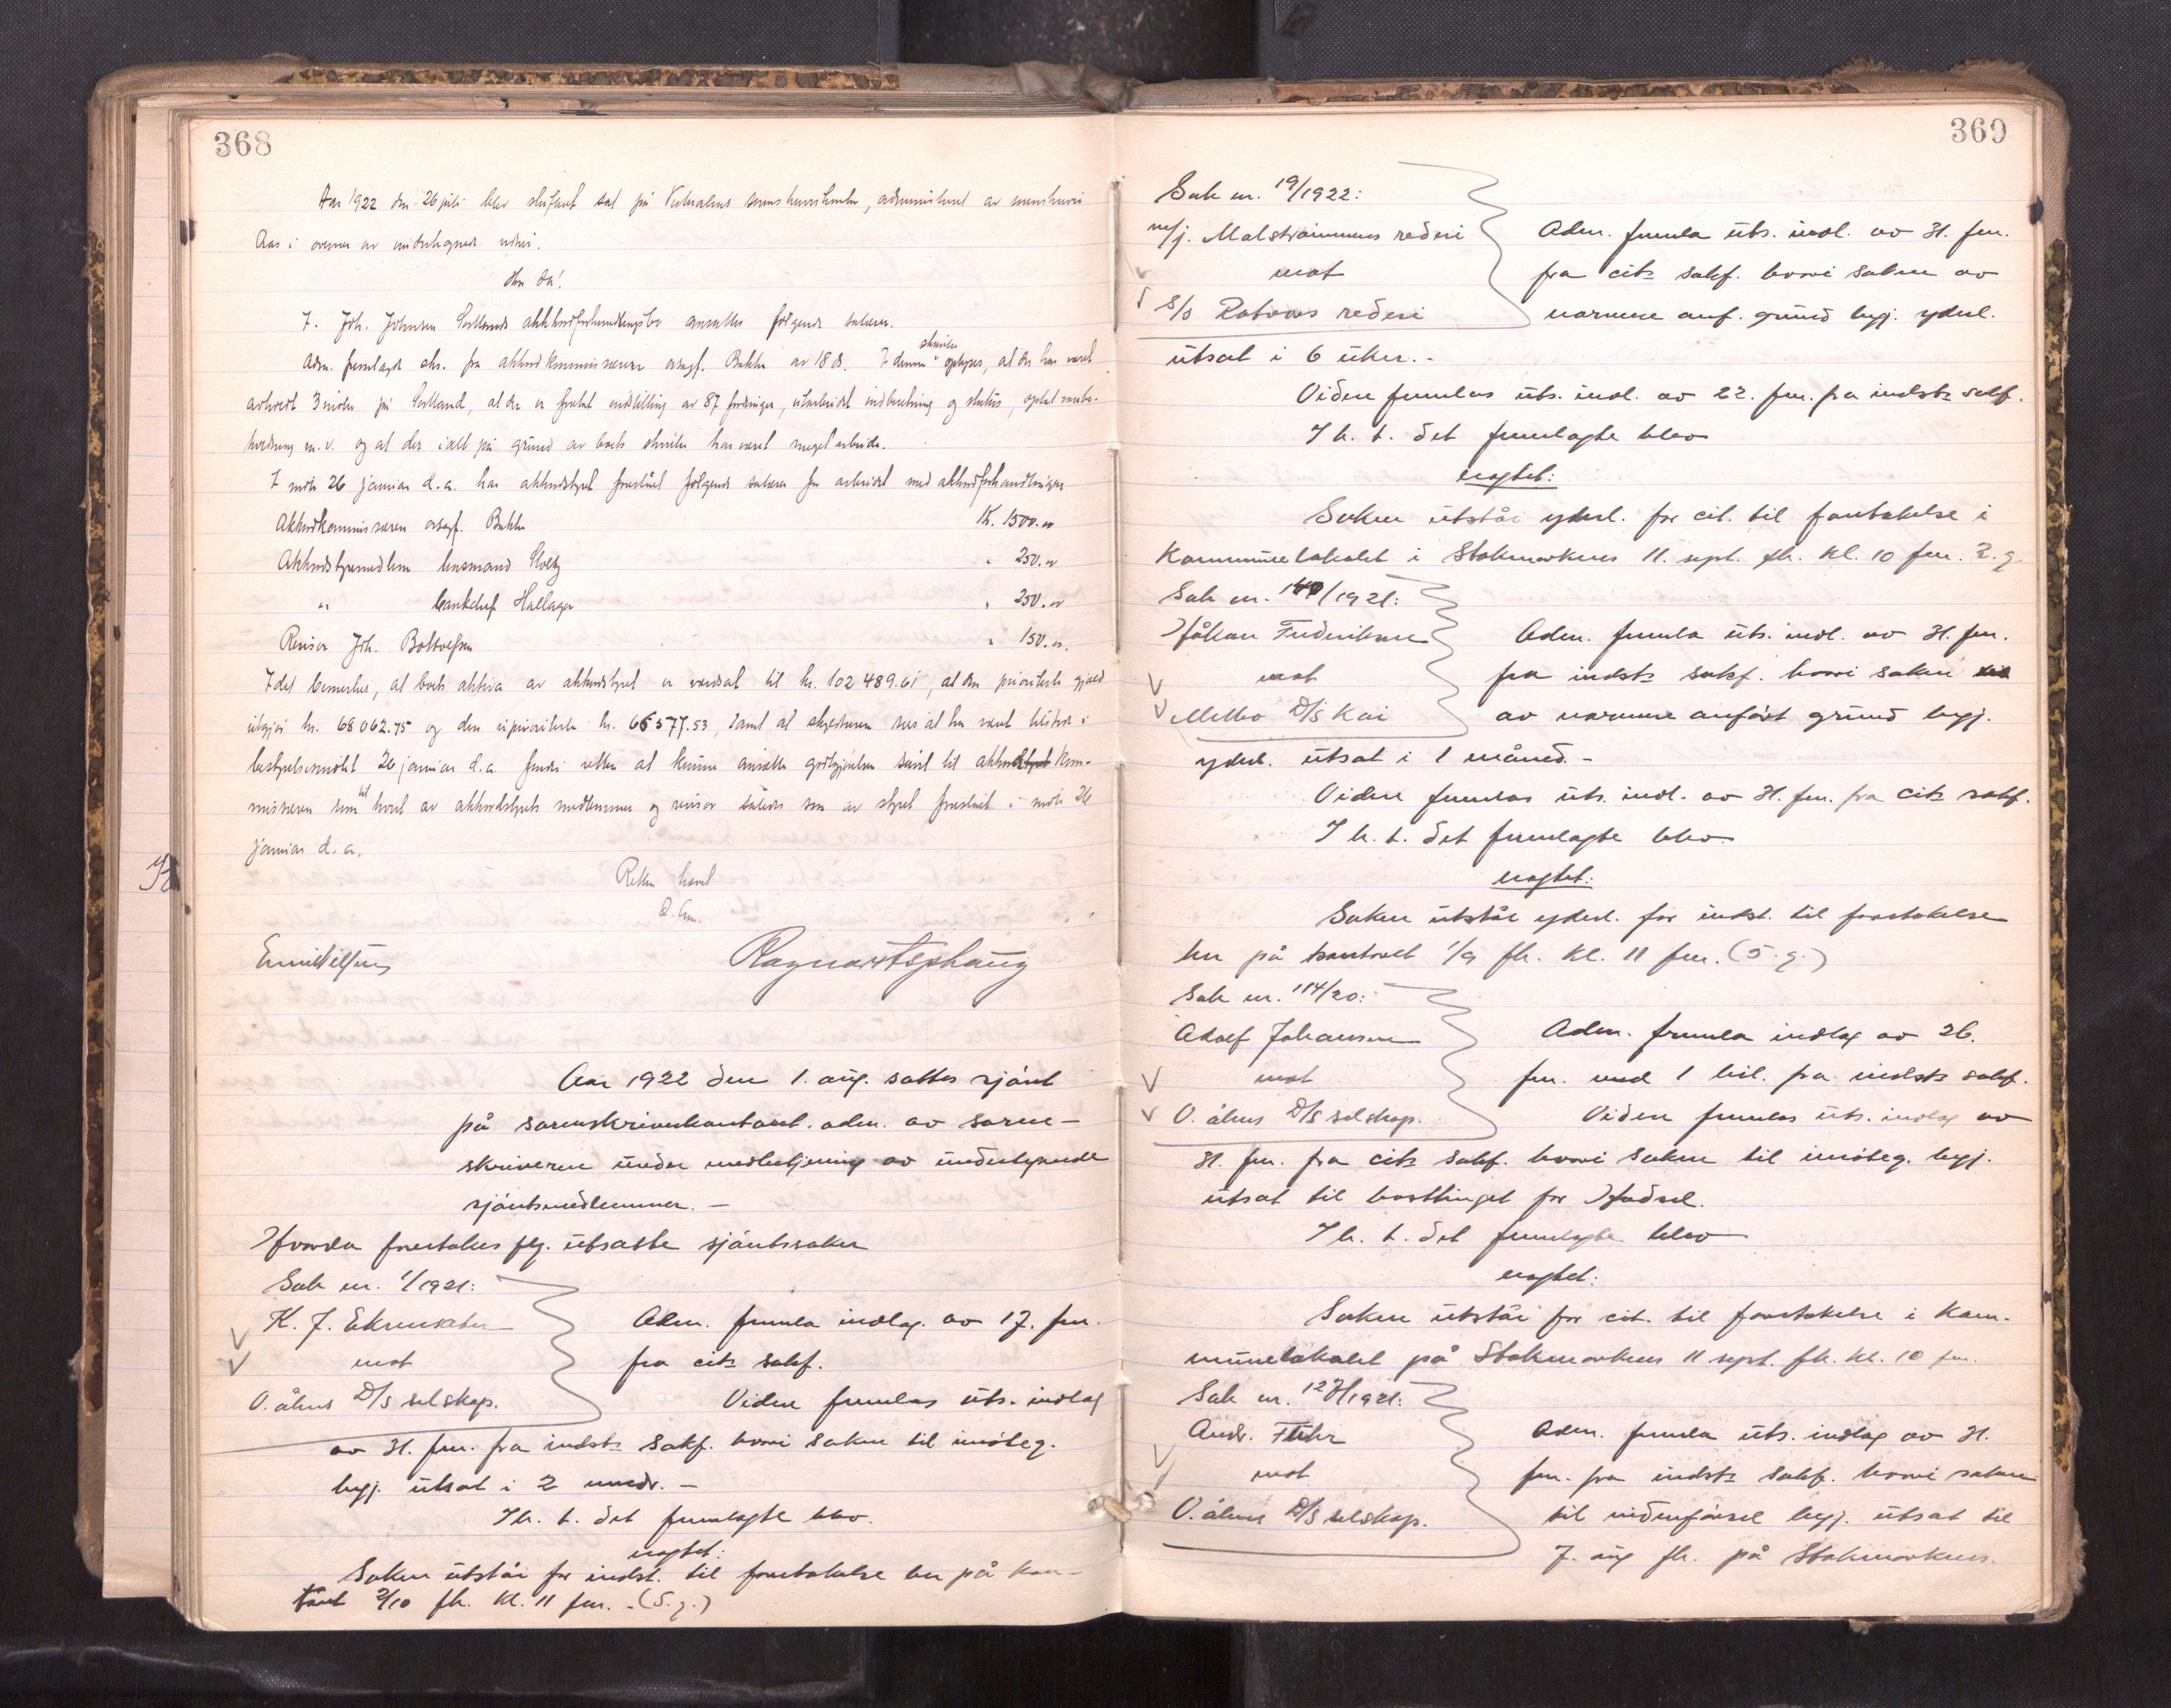 368
Aar 1922 den 26 juli blev skifteret sat på Vesteraalens sorenskriverkontor, administreret av sorenskriver
Aas i overvær av undertegnede vidner.
Hvor da!
I Joh. Johnsen Sortlands akkordforhandlingsbo ansattes følgende salærer.
Adm. fremlagde skr. fra akkordkommissæren orsagf. Bakke av 18 ds. I denne skrivelse oplyses, at der har været
avholdt 3 møter på Sortland, at der er foretat indstilling av 87 fordringer, utarbeidet indberetning og status,
m.v. og at der i alt på grund av boets størrelse har været meget arbeide.
I møte 26 januar d.a. har akkordstyret foreslåt følgende salærer for arbeidet med akkordforhandlingen
Akkordkommissæren orsagf. Bakke Kr. 1500.00
Akkordstyremedlem lensmand Holtz " 250.00
" bankchef Hallager " 250.00
Revisor Joh. Boltolfsen " 150.00
I det bemerkes, at boets aktiva av akkordstyret er verdsat til kr. 102 489.61, at den prioriterte gjæld
utgjør kr. 68 062.75 og den uprioriterte kr. 66 577.53, samt at skyldneren sees at ha været tilstede i
bestyrelsesmøtet 26 januar d.a. fandt retten at kunne ansætte godtgjørelsen såvel til akkordkom-
missæren som til hvert av akkordstyrets medlemmer og revisor således som av styret foreslåt i møte 26
januar d.a.
Retten hævet
Emil Nilsen Ragnar Stephaug
Aar 1922 den 1. aug. sattes sjøret
på sorenskriverkontoret adm. av soren-
skriveren under medbetjening av undertegnede
sjøretsmedlemmer. –
Hvorda foretokes flg. utsatte sjøretssaker
Sak nr. 1/1921:
K. J. Ekrensæter
mot
O. åens D/S selskap.
Adm. fremla indlæg av 17. fm.
fra citz sakf.
Viden fremlas uts. indlæg
av 31. fm. fra indstz sakf. hvori saken til imøteg.
begj. utsat i 2 mndr. –
I h. t. det fremlagte blev
vogtet:
Saken utstår for indst. til foretakelse her på kon-
toret 3/10 fk. kl. 11 fm. – (5. g.)
369
Sak nr. 19/1922:
m/j. Malstrømmens rederi
mot
S/S Ratvaas rederi
Adm. fremla uts. indl. av 31. fm.
fra citz sakf. hvori saken av
nærmere anf. grund begj. yderl.
utsat i 6 uker. –
Viden fremlas uts. indl. av 22. fm. fra indstz sakf.
I h. t. det fremlagte blev
vogtet:
Saken utstår yderl. for cit. til foretakelse i
kommunelokalet i Stokmarknes 11. sept. fk. kl. 10 fm. 2. g.
Sak nr. 140/1921:
Håkon Frederiksen
mot
Melbo D/S Kai
Adm. fremla uts. indl. av 31. fm.
fra indstz sakf. hvori saken
av nærmere anført grund begj.
yderl. utsat i 1 måned. –
Viden fremlas uts. indl. av 31. fm. fra citz sakf.
I h. t. det fremlagte blev
vogtet:
Saken utstår yderl. for indst. til foretakelse
her på kontoret 1/9 fk. kl. 11 fm. (5. g.)
Sak nr. 114/20:
Adolf Johansen
mot
O. åens D/S selskap.
Adm. fremla indlæg av 26.
fm. med 1 bil. fra indstz sakf.
Viden fremlas uts. indlæg av
31. fm. fra citz sakf. hvori saken til imøteg. begj.
utsat til høsttinget for Hadsel.
I h. t. det fremlagte blev
vogtet:
Saken utstår for cit. til foretakelse i kom-
munelokalet på Stokmarknes 11 sept. fk. kl. 10 fm.
Sak nr. 127/1921:
Andr. Führ
mot
O. åens D/S selskap.
Adm. fremla uts. indlæg av 31.
fm. fra indstz sakf. hvori saken
til vidneførsel begj. utsat til
7. aug fk. på Stokmarknes.